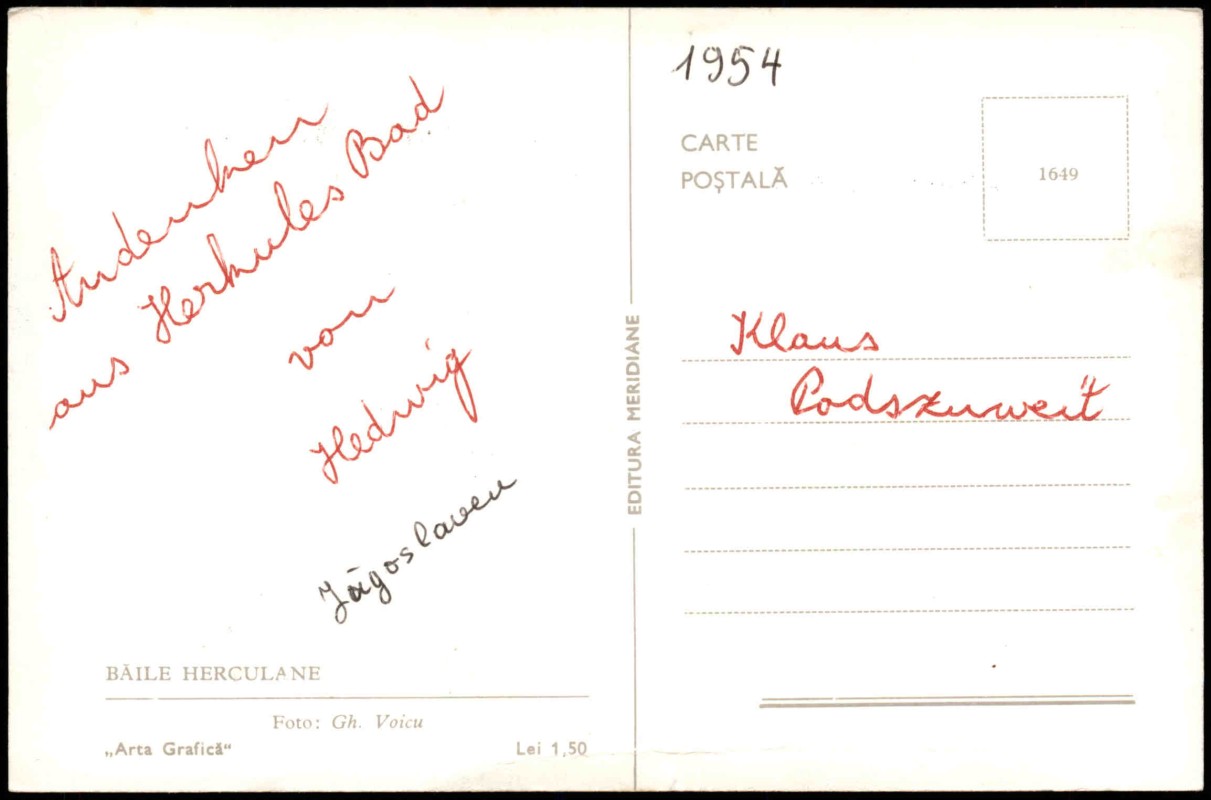 Andenken
aus Herkules Bad
von
Hedwig
Jügoslaven
BĂILE HERCULANE
Foto: Gh. Voicu
„Arta Grafică“
Lei 1,50
EDITURA MERIDIANE
1954
CARTE
POȘTALĂ
1649
Klaus
Podszuweit